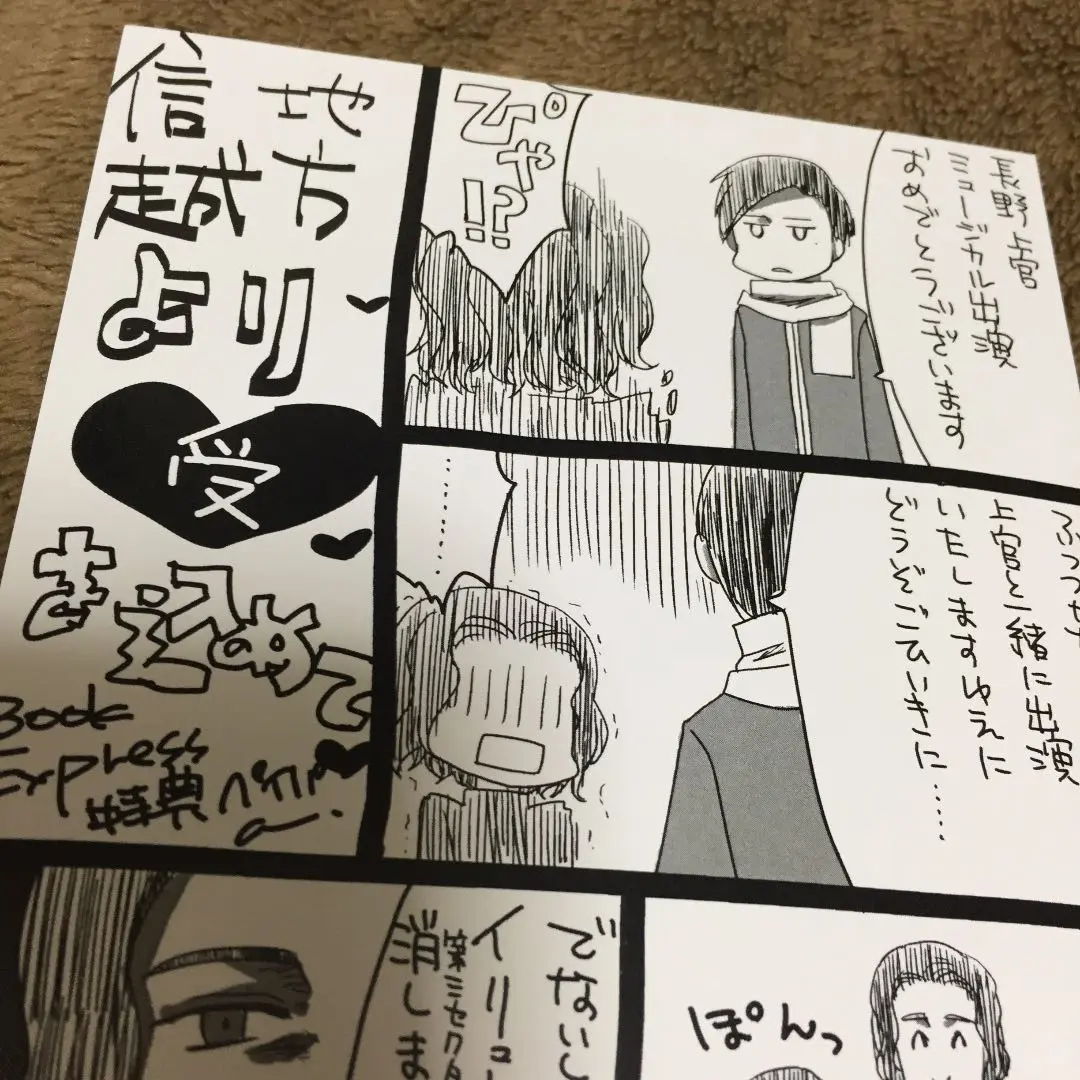 信越地方
より
受
をこめて
Book
Express
特典ペーパー
長野上官
ミュージカル出演
おめでとうございます
ぴゃ
!!?
上官と一緒に出演
いたしますゆえに
どうぞごひいきに……
……
でないと
イリュー
第三セクタ
消しま
ぽんっ